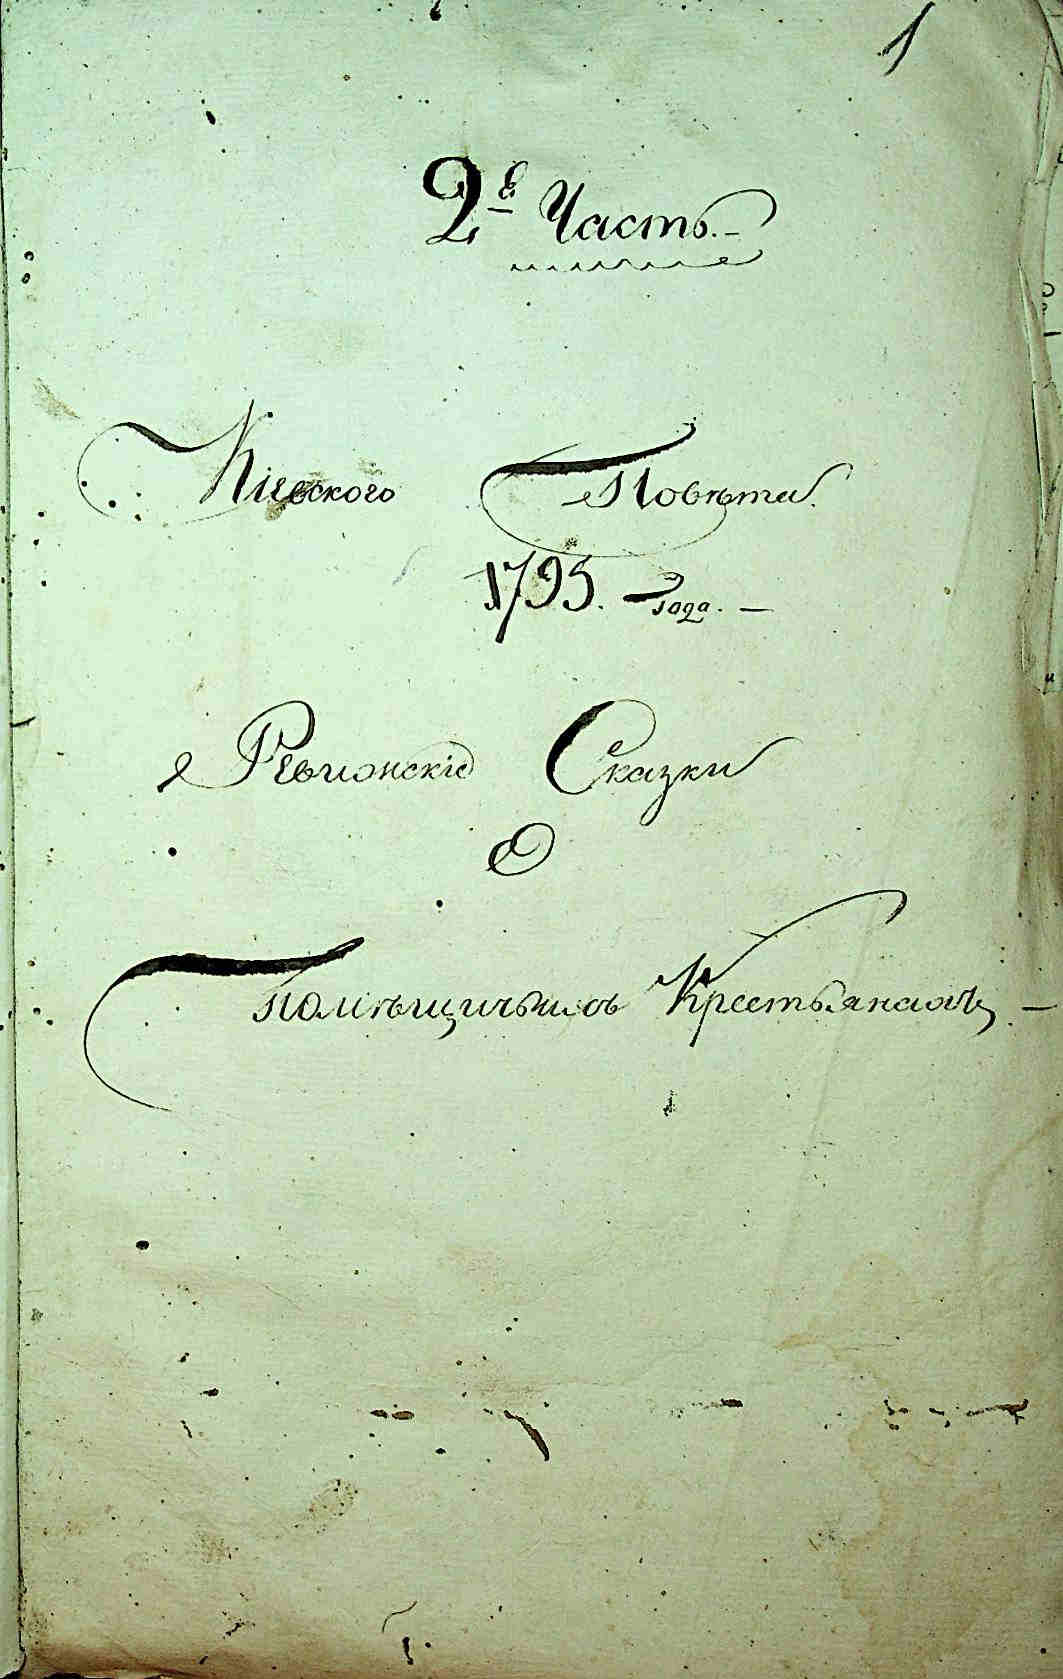 1
2е Часть.-
Кіевского Повѣта.
1795. Года. —
Ревизскіе Сказки
О
Помѣщичьихъ Крестьянахъ. —